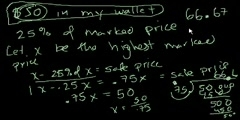 $50 in my wallet 66.67
25% of marked price
Let x be the highest marked
price
x - 25% of x = sale price
1x - .25x = .75x = sale price
.75x = 50
x = 50/.75
.75 50